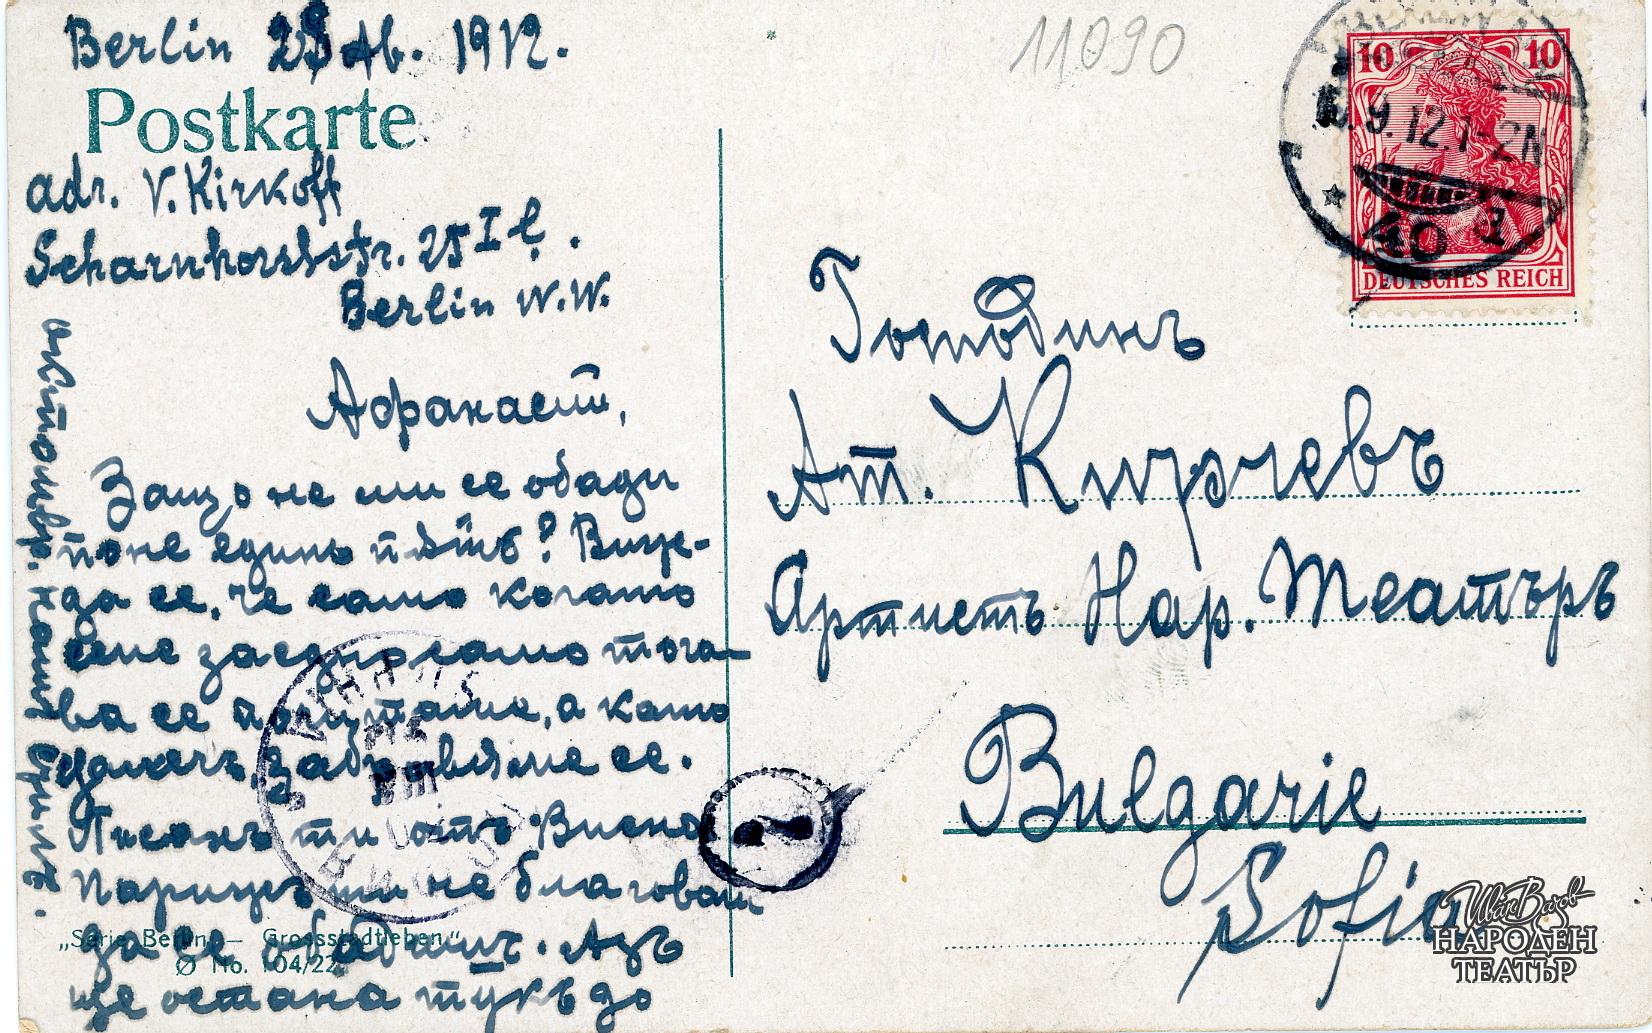 Berlin 28 Ab. 1912.
11090
Postkarte
adr. V. Kirkoff
Scharnhorststr. 25 I l.
Berlin N.W.
Афанасти,
Защо не ми се обади
поне единъ пѫть? Виже-
да се, че само когато
сме заедно само тога-
ва се почитаме, а като
далечъ, забравяме се.
Писахъ ти отъ Виена
Парижъ ти не благоволи
да се обадишъ. Азъ
ще остана тукъ до
октомвр.
"Serie Berlin — Grossstadtleben"
No. 104/22
10 10
9.12.1-2N
40 1
DEUTSCHES REICH
Господинъ
Ат. Кирчевъ
Артистъ Нар. Театъръ
Bulgarie
Sofia
Иван Вазов
НАРОДЕН
ТЕАТЪР